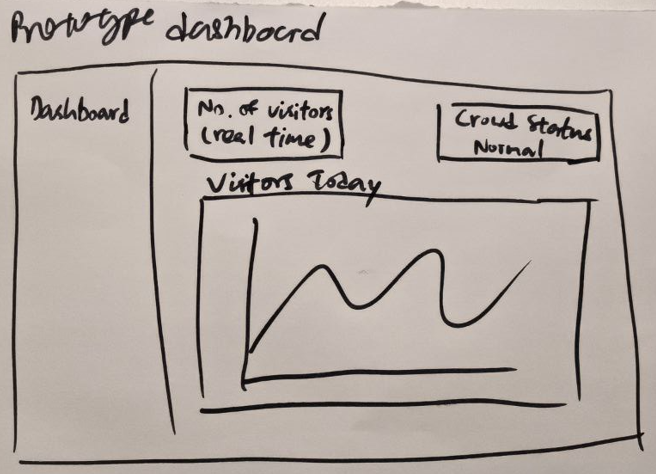 Prototype dashboard
Dashboard
No. of visitors
(real time)
Crowd Status
Normal
Visitors Today